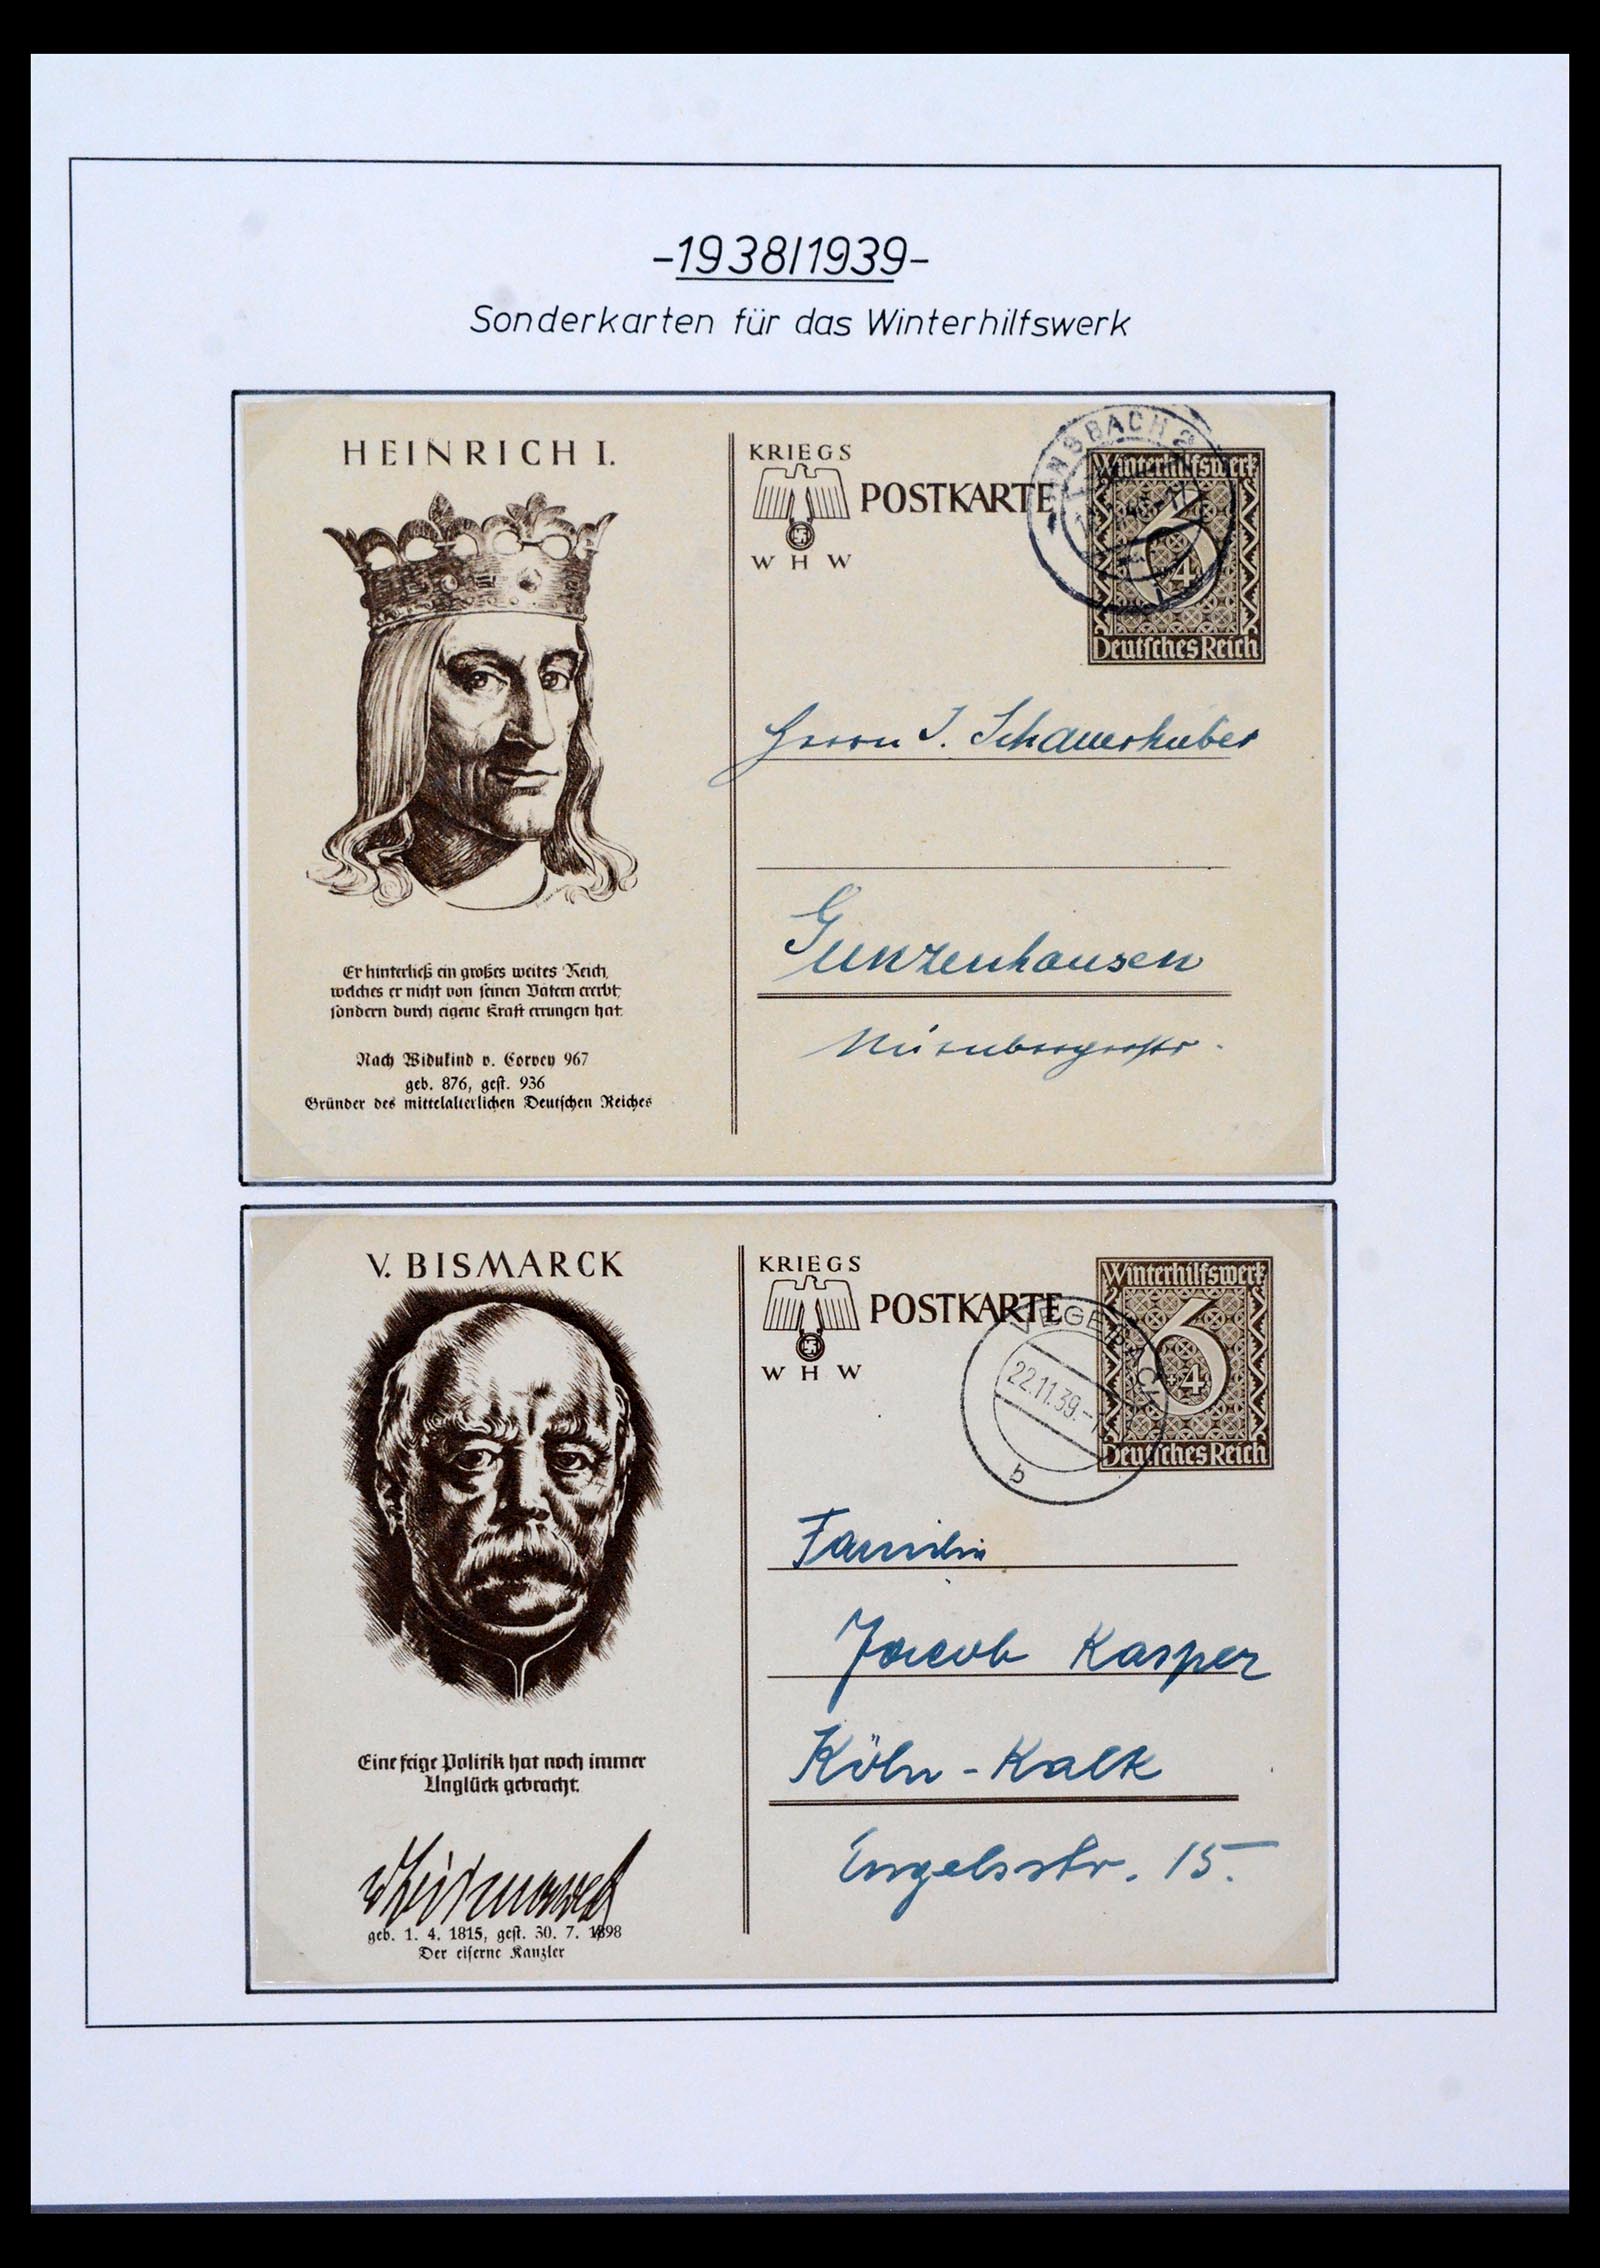 -1938/1939-
Sonderkarten für das Winterhilfswerk
HEINRICH I.
Er hinterließ ein großes weites Reich,
welches er nicht von seinen Vätern ererbt,
sondern durch eigene Kraft errungen hat.
Nach Widukind v. Corvey 967
geb. 876, gest. 936
Gründer des mittelalterlichen Deutschen Reiches
KRIEGS
POSTKARTE
W H W
ANSBACH 2
Winterhilfswerk
6
+4
Deutsches Reich
Herrn J. Schauerhuber
Gunzenhausen
Nürnbergerstr.
V. BISMARCK
Eine feige Politik hat noch immer
Unglück gebracht.
v Bismarck
geb. 1. 4. 1815, gest. 30. 7. 1898
Der eiserne Kanzler
KRIEGS
POSTKARTE
W H W
VEGESACK
22.11.39.-1
b
Winterhilfswerk
6
+4
Deutsches Reich
Familie
Jacob Kasper
Köln-Kalk
Engelsstr. 15.